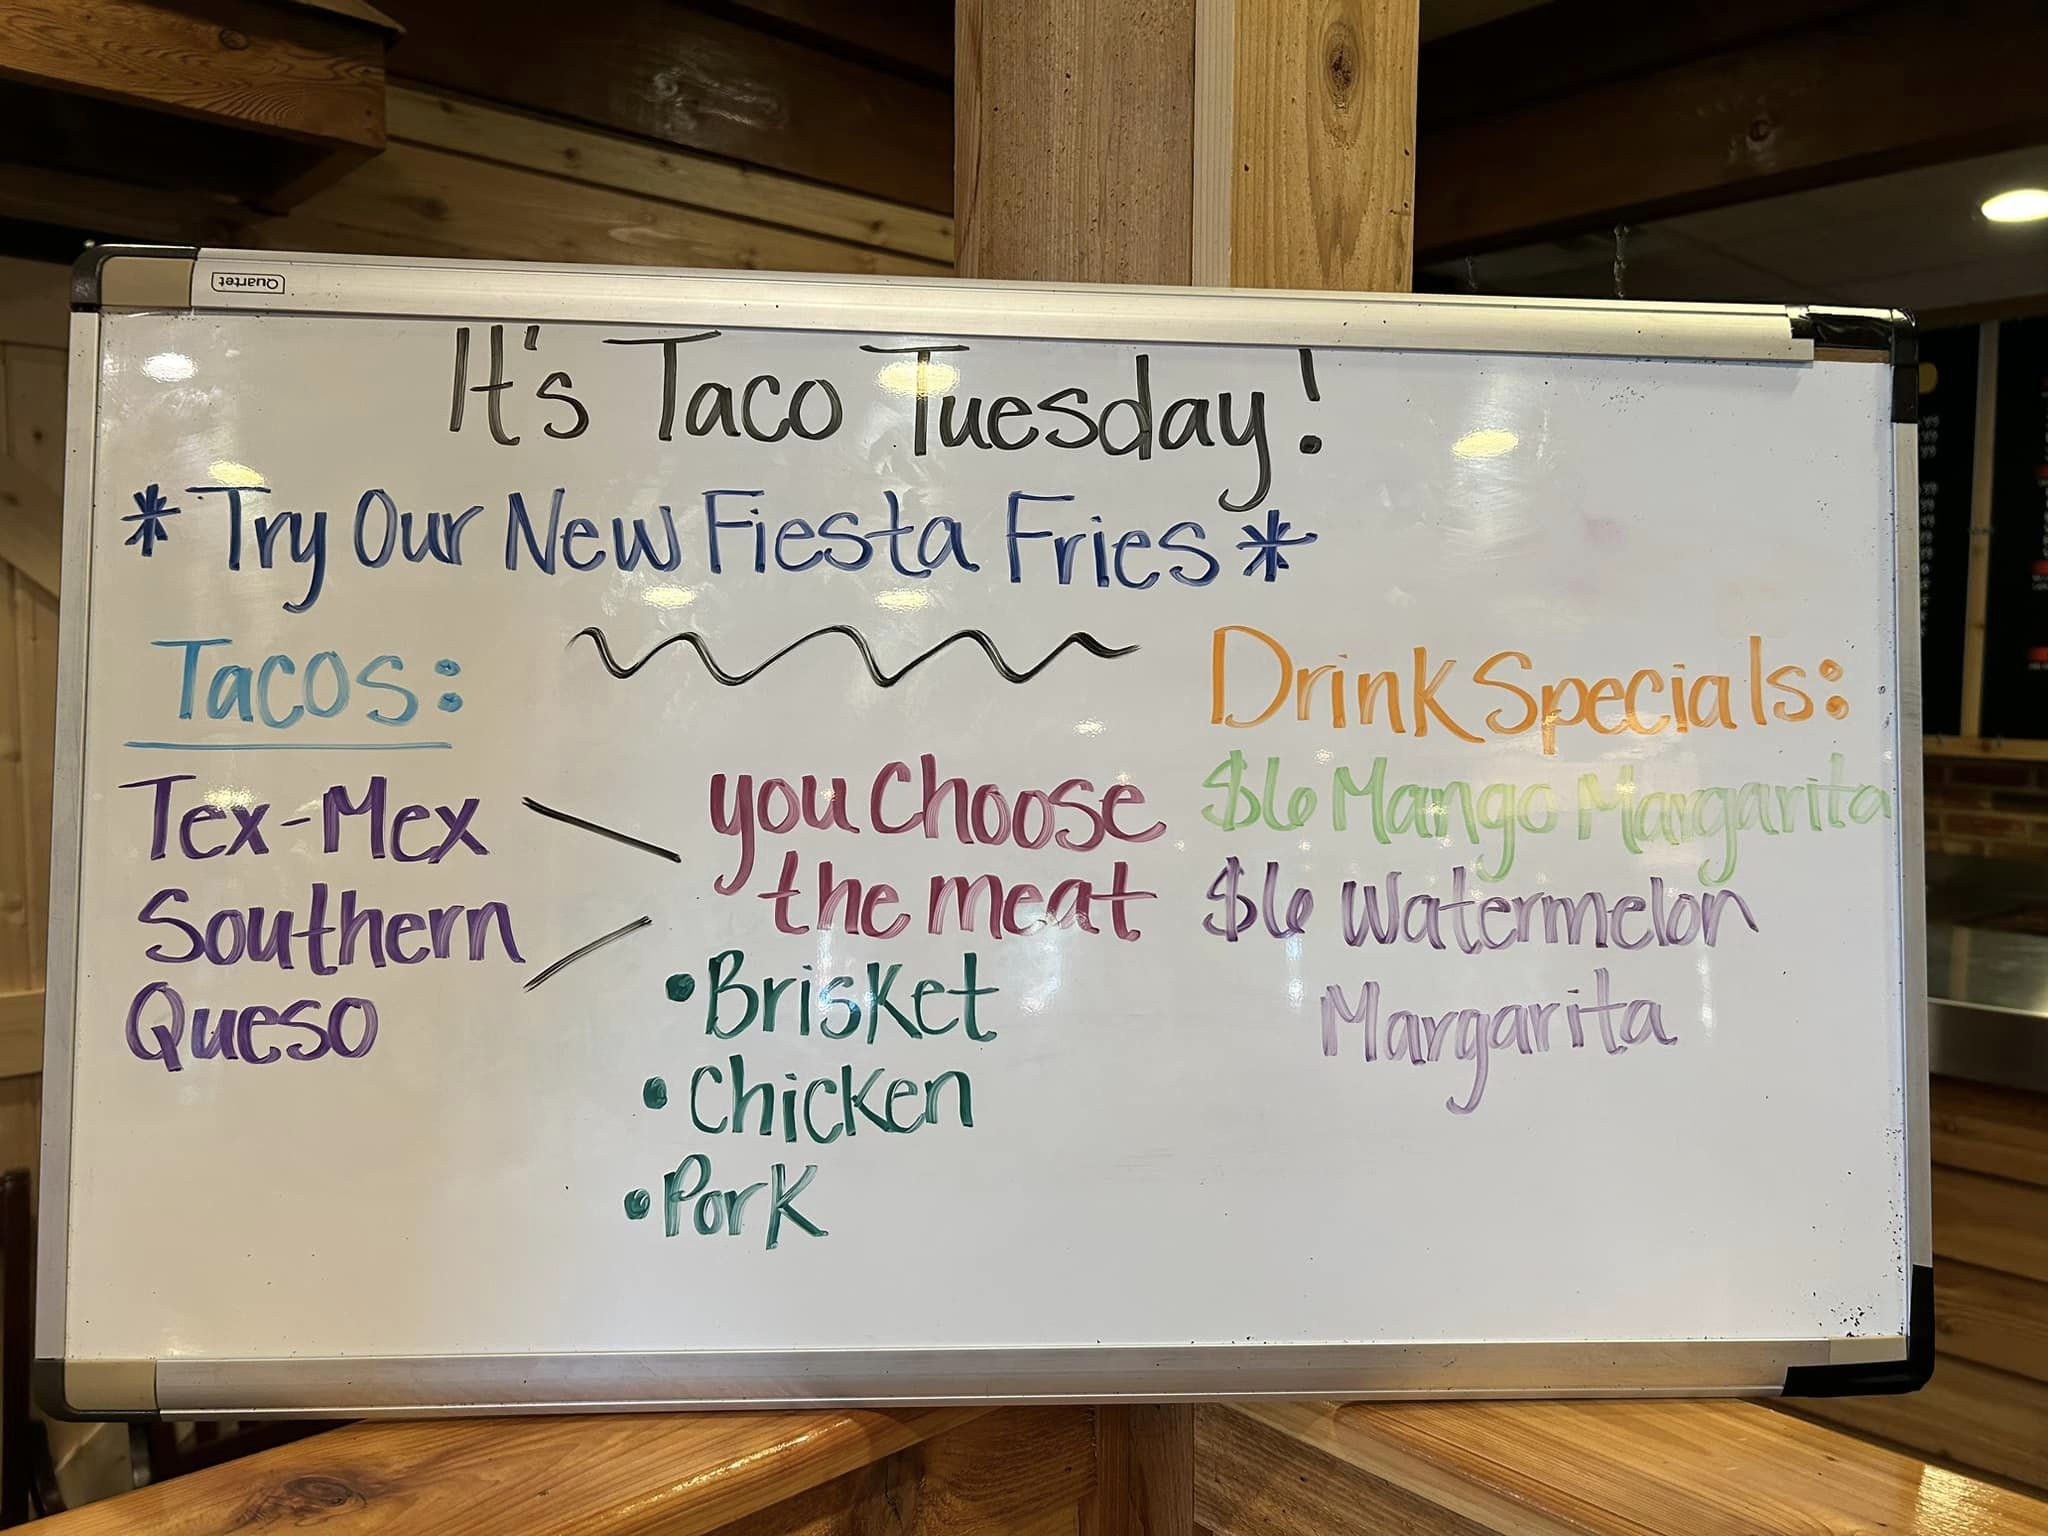 Quartet
It's Taco Tuesday!
*Try Our New Fiesta Fries*
Tacos:
Tex-Mex
Southern
Queso
you choose
the meat
•Brisket
•Chicken
•Pork
Drink Specials:
$6 Mango Margarita
$6 Watermelon
Margarita